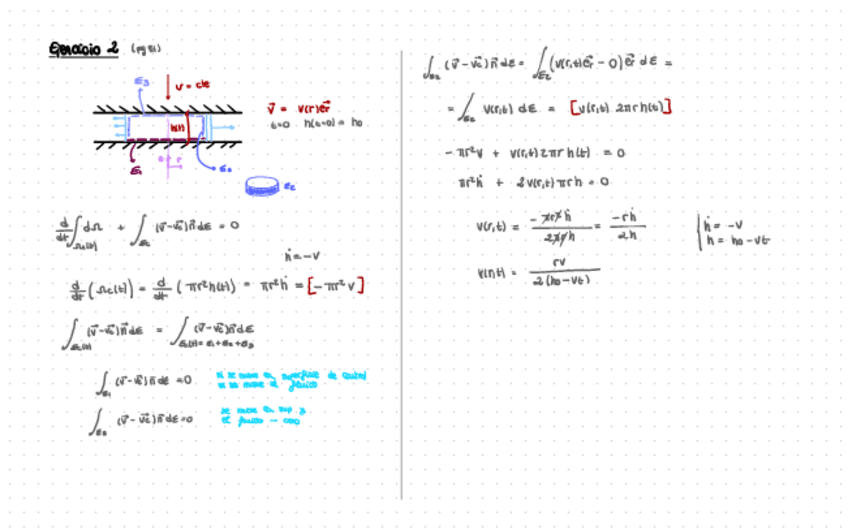 Ejercicio 2 (pg 81)
Σ3
v = cte
v⃗ = v(r)e⃗r
t=0 h(t=0) = h0
h(t)
r
Σ1
Σ2
Σ2
d/dt ∫Ωc(t) dΩ + ∫Σc (v⃗-v⃗c)n⃗ dΣ = 0
ḣ = -v
d/dt (Ωc(t)) = d/dt (πr²h(t)) = πr²ḣ = [-πr²v]
∫Σc(t) (v⃗-v⃗c)n⃗ dΣ = ∫Σc(t)=Σ1+Σ2+Σ3 (v⃗-v⃗c)n⃗ dΣ
∫Σ1 (v⃗-v⃗c)n⃗ dΣ = 0 ni se mueve la superficie de control
ni se mueve el fluido
∫Σ3 (v⃗-v⃗c)n⃗ dΣ = 0 se mueve la sup y
el fluido
∫Σ2 (v⃗-v⃗c)n⃗ dΣ = ∫Σ2 (v(r,t)e⃗r - 0)e⃗r dΣ =
= ∫Σ2 v(r,t) dΣ = [v(r,t) 2πr h(t)]
-πr²v + v(r,t)2πr h(t) = 0
πr²ḣ + 2v(r,t)πrh = 0
v(r,t) = -πr²ḣ / 2πrh = -rḣ / 2h
ḣ = -v
h = h0 - vt
v(r,t) = rv / 2(h0-vt)